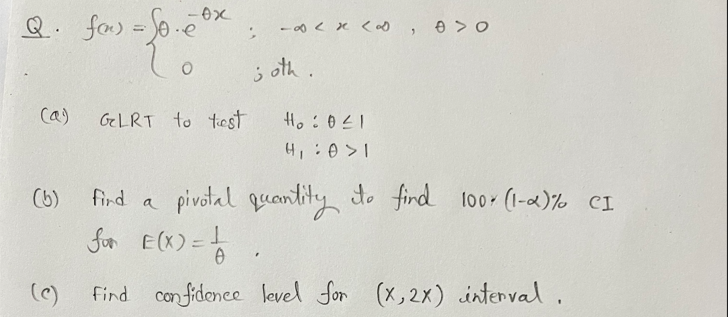 Q. f(x) = { θ.e^{-θx} ; -∞ < x < ∞ , θ > 0
0 ; oth.
(a) GLRT to test H₀ : θ ≤ 1
H₁ : θ > 1
(b) Find a pivotal quantity to find 100×(1-α)% CI
for E(X) = 1/θ .
(c) Find confidence level for (X, 2X) interval.